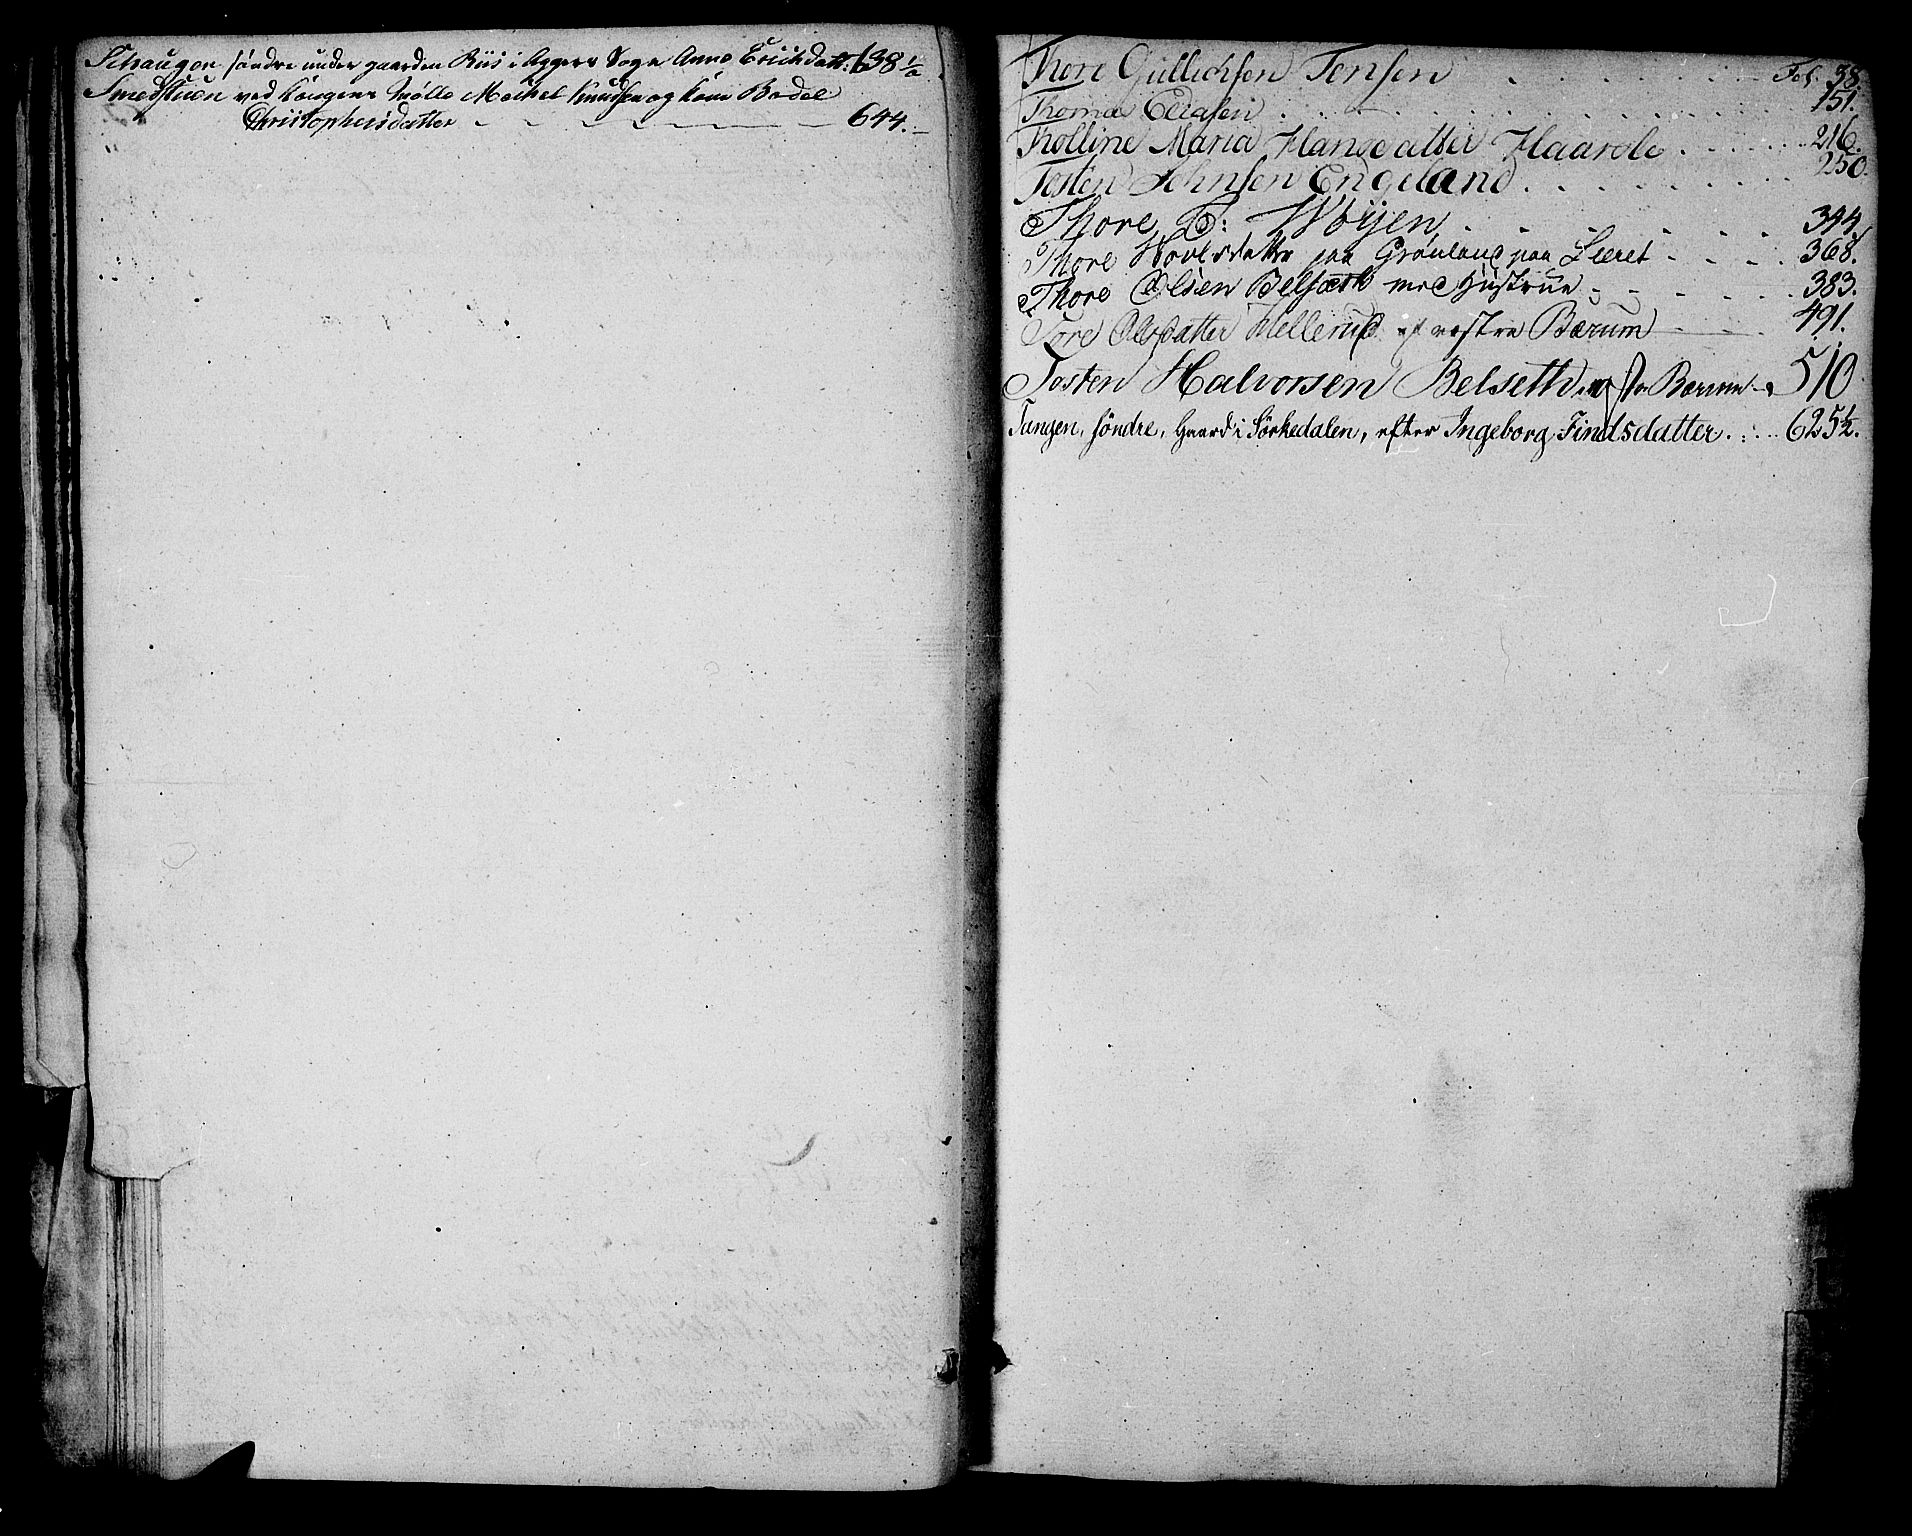 Schaugen søndre under gaarden Riis i Aggers Sogn Anne Erichsdatt: 638 1/2
Smedstuen ved Kongens Mølle Mickel Knudsen og Kone Bodel
Christophersdatter - - - - - 644. -
Thore Gullichsen Jonsen . . . . Fol. 38.
Thomas . . . . 151.
Tholline Maria Hansdatter Haarsle . . . . 216.
Tosten Johnsen Engeland . . . . 250.
Thore T: Wøyen . . . . 344.
Thore Hovelsdatter paa Grønland paa Leeret - - - - 368.
Thore Olsen Belsæth med Hustrue - - - - 383.
Tore Olsdatter Hellerud af vestre Bærum - - - 491.
Tosten Halvorsen Belseth Bærum - 510
Tangen, søndre, Gaard i Sørkedalen, efter Ingeborg Findsdatter . : . . 625½.